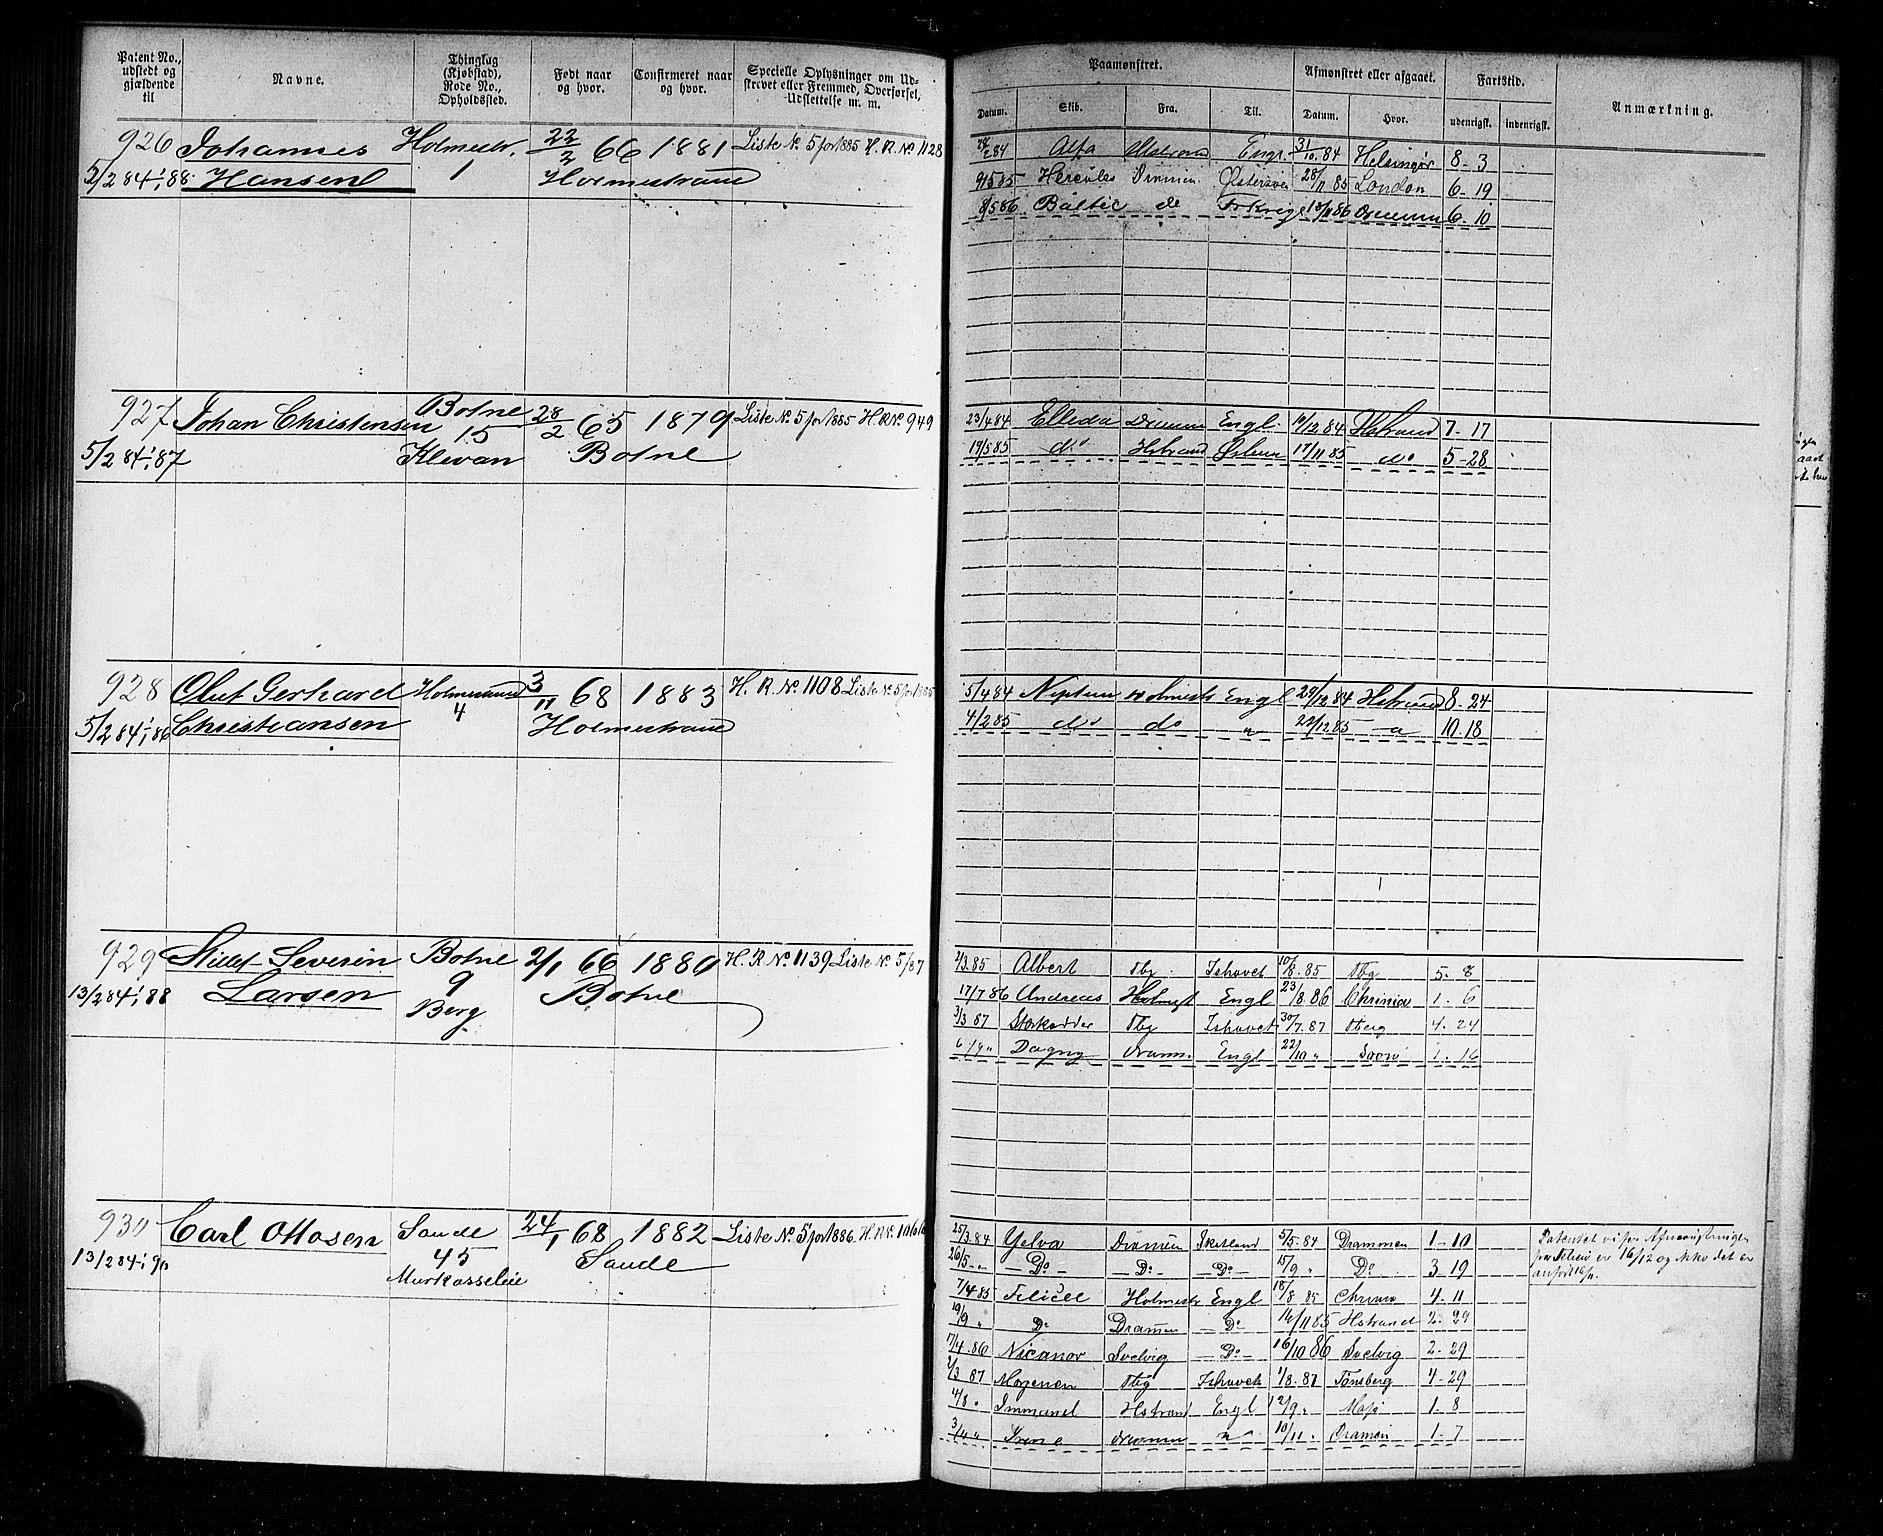 Patent No., udstedt og gjældende til
Navne.
Thinglag (Kjøbstad), Rode No., Opholdssted.
Født naar og hvor.
Confirmeret naar og hvor.
Specielle Oplysninger om Udskrevet eller Fremmed, Overførsel, Udslettelse m. m.
Paamønstret.
Afmønstret eller afgaaet.
Fartstid.
Anmærkning.
Datum. Skib. Fra. Til. Datum. Hvor. udenrigst. indenrigst.
926 Johannes Holmestr. 22/2 66 1881 Liste No 5 for 1885 H. R. No 1128
5/2 84 ; 88 Hansen 1 Holmestrand
2 84 Alfa Engl. 31/10 84 Helsingør 8 - 3
9/5 85 Hercules Drammen Østersøen 28/11 85 London 6 - 19
8/5 86 Baltic do Frkrige 18/11 86 6 - 10
927 Johan Christensen Botne 28/2 65 1879 Liste No 5 for 1885 H. R. No 949
15
5/2 84 ; 87 Klevan Botne
23/4 84 Ellida Drammen Engl. 10/12 84 Hstrand 7 - 17
19/5 85 do Hstrand 17/11 85 do 5 - 28
928 Oluf Gerhard Holmestrand 3/11 68 1883 H. R. No 1108 Liste No 5 for 1885
4
5/2 84 ; 86 Christiansen Holmestrand
5/4 84 Neptun Holmestr Engl 29/12 84 Hstrand 8 - 24
4/2 85 do do " 22/12 85 10 - 18
929 Severin Botne 2/1 66 1880 H. R. No 1139 Liste No 5/87
9
13/2 84 ; 88 Larsen Berg Botne
2/3 85 Albert Tbg Ishavet 10/8 - 85 Tbg 5 - 8
17/7 86 Andreas Holmest Engl 23/8 86 Chrinia 1 - 6
3/3 87 Stærkodder Tbg Ishavet 30/7 87 Tberg 4 - 24
6/9 " Dagny Dramm. Engl 22/10 " 1 - 16
930 Carl Ottosen Sande 24/1 68 1882 Liste No 5 for 1886. H. R. No 1066
45
13/2 84 ; 90 Sande
25/3 84 Yelva Drammen Skotland 5/5 - 84 Drammen 1 - 10
26/5 - " Do Do Do 15/9 " Do 3 19
7/4 85 Felicae Holmestr Engl 18/8 85 Chrinia 4 - 11
19/9 " Do Drammen Do 16/11 85 Hstrand 2 - 29
17/4 86 Nicanor Svelvig Do 16/10 86 Svelvig 2 - 29
2/3 87 Tbg Ishavet 1/8 - 87 Tønsberg 4 - 29
4/8 " Immanel Hstrand Engl 12/9 " Moss 1 - 8
3/ " Irene Drammen " 10/11 . Dramen 1 - 7
Patentet viser Afmønstringen
er 16/12 og ikke det er
anført 16/11.